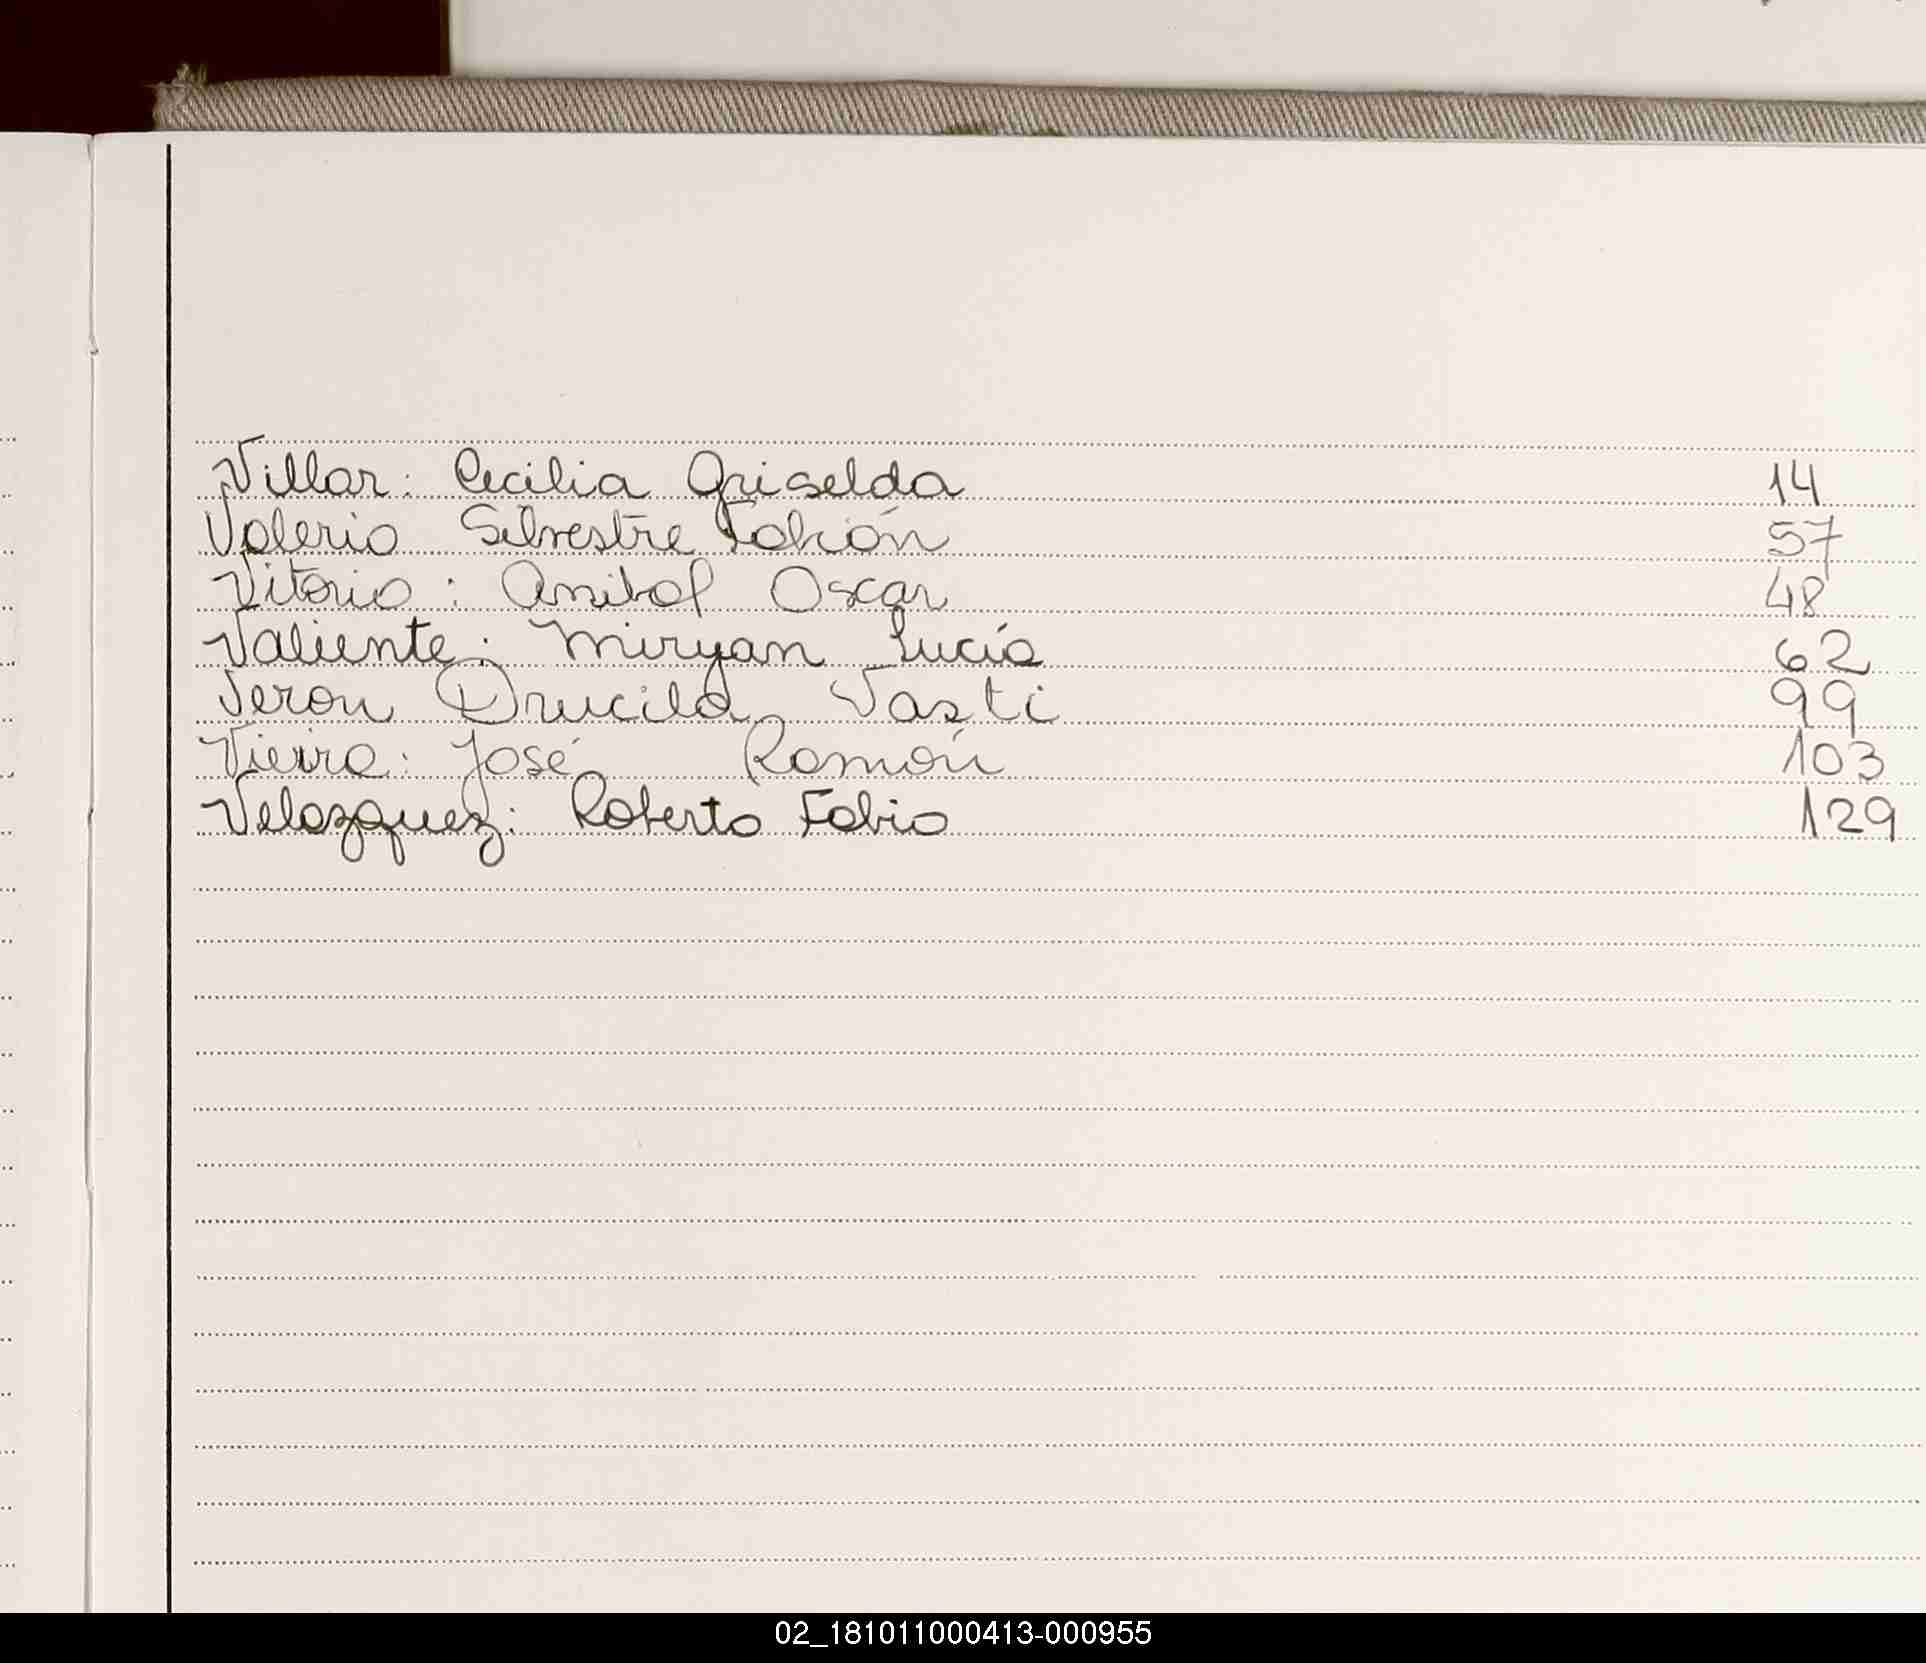 Villar: Cecilia Griselda 14
Valerio Silvestre Fabián 57
Vitorio: Anibal Oscar 48
Valiente: Miryan Lucía 62
Veron Drucila Vasti 99
Vieira: José Ramón 103
Velozquez: Roberto Fabio 129
02_181011000413-000955